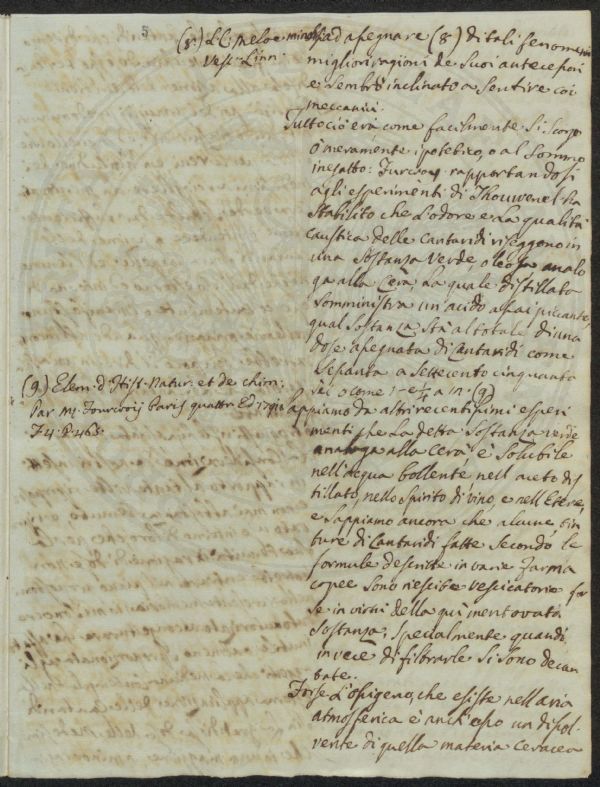 5
(8) L. C. Meloe
Vest. Linn.
ad assegnare (8) di tali fenomeni
migliori ragioni de suoi antecessori
e sembrò inclinato a sentire coi
meccanici.
Tutto ciò era come facilmente si scorge
o meramente ipotetico, o al sommo
inesatto: Furcroy rapportandosi
agli esperimenti di Thouvenel ha
stabilito che l'odore e la qualità
caustica delle Cantaridi riseggono in
una sostanza verde, oleosa analo
ga alla Cera, la quale distillata
somministra un acido assai piccante,
qual sostanza sta al totale di una
dose assegnata di Cantaridi come
sesanta a settecento cinquanta
sei o come 1 e 1/4 a 12. (9)
(9) Elem. d'Hist. Natur. et de chim:
Par Mr. Fourcroij Paris quattr. Ed. 1791
T. 4. P. 465.
Sappiamo da altri recentissimi esperi
menti che la detta sostanza verde
analoga alla Cera è solubile
nell'acqua bollente nell aceto dis
tillato, nello spirito di vino, e nell'Etere,
e sappiamo ancora che alcune tin
ture di Cantaridi fatte secondo le
formule descritte in varie Farma
copee sono riescite vescicatorie for
se in virtù della qui mentovata
sostanza, specialmente quando
invece di filtrarle si sono decan
tate.
Forse l'ossigeno, che esiste nell'aria
atmosferica è anch'esso un dissol-
vente di quella materia ceracea